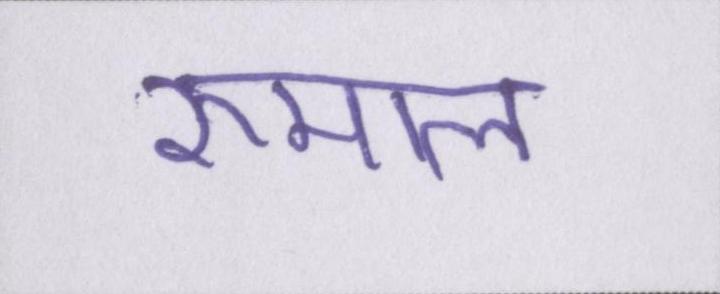 रुमाल